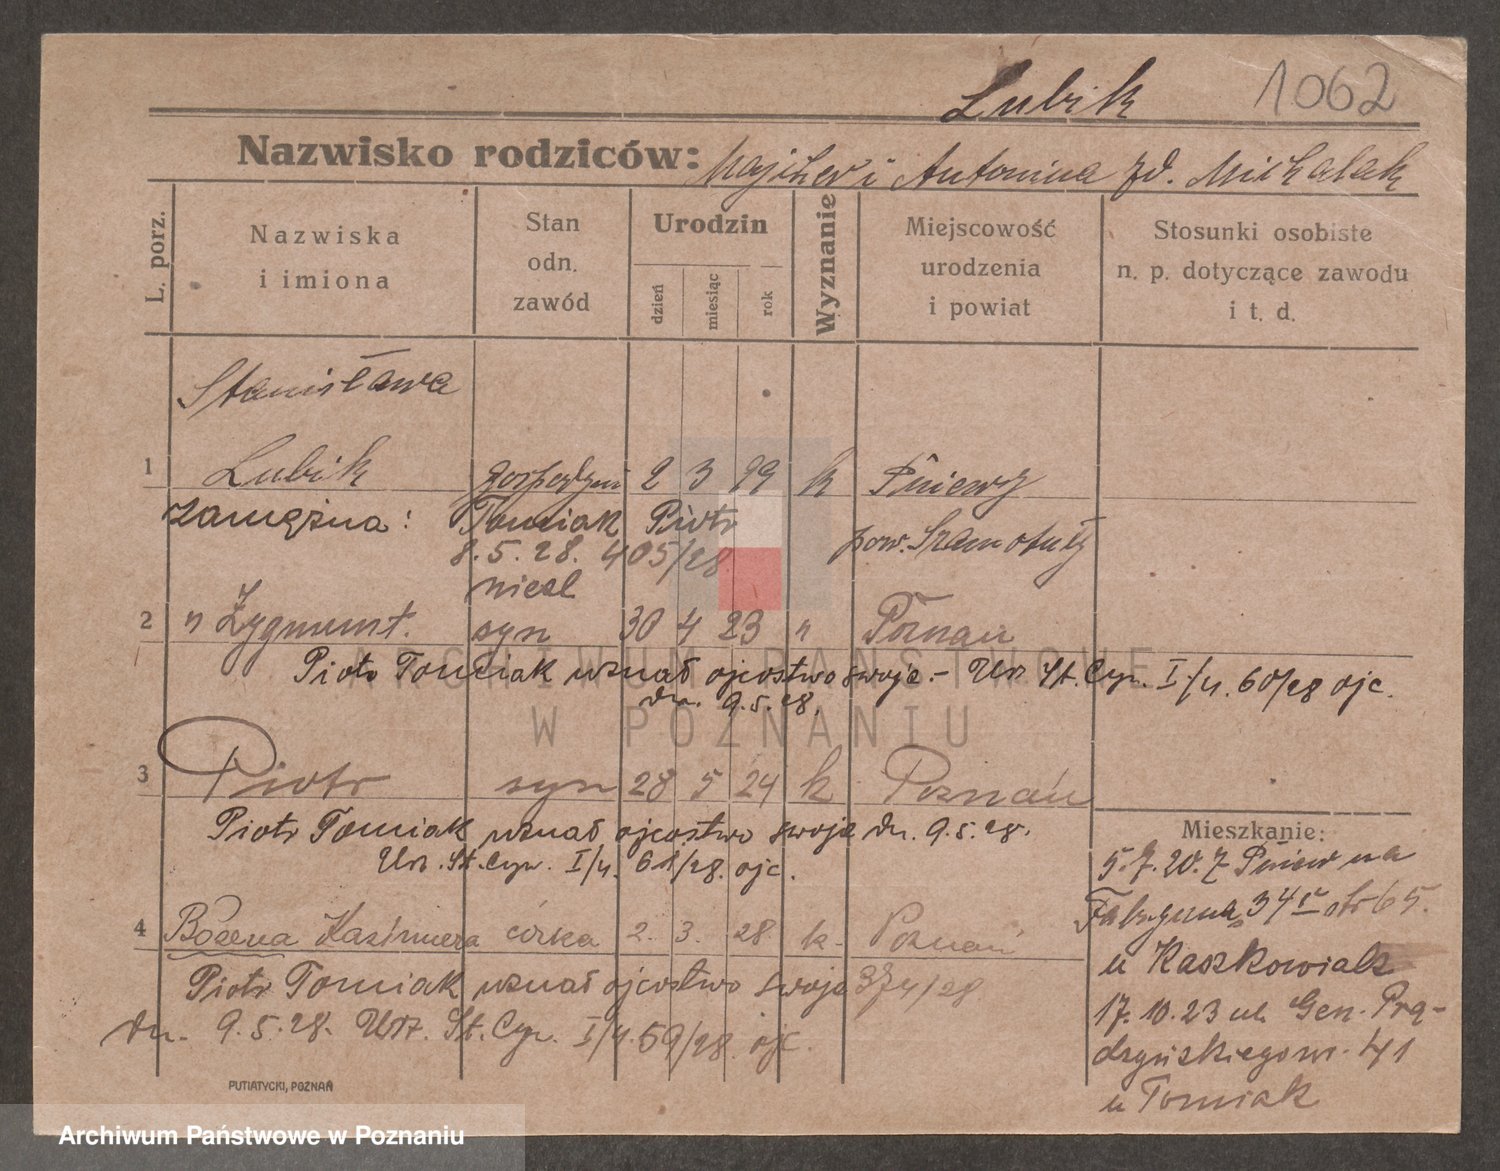 Lubik 1062
Nazwisko rodziców: Wojciech i Antonina zd. Michalak
L. porz.
Nazwiska i imiona
Stan odn. zawód
Urodzin
dzień
miesiąc
rok
Wyznanie
Miejscowość urodzenia i powiat
Stosunki osobiste n. p. dotyczące zawodu i t. d.
Stanisława
1 Lubik 2 3 99 k Pniewy
zamężna: Tomiak Piotr pow. Szamotuły
8.5.28. 405/28
niezl
2 " Zygmunt. syn 30 4 23 " Poznań
Piotr Tomiak uznał ojcostwo swoje.- Urz. St. Cyw. I/4. 60/28 ojc.
dn. 9.5.28.
3 Piotr syn 28 5 24 k Poznań
Piotr Tomiak uznał ojcostwo swoje dn. 9.5.28.
Urz. St. Cyw. I/4. 61/28. ojc.
4 Bożena Kazimiera córka 2. 3. 28 k. Poznań
Piotr Tomiak uznał ojcostwo swoje 374/28
dn. 9.5.28. Urz. St. Cyw. I/4. 59/28. ojc.
Mieszkanie:
5.7.20. z Pniew na
34 65.
u Kaszkowiak
17.10.23 ul. Gen. Prą-
dzyńskiego nr. 41
u Tomiak
PUTIATYCKI, POZNAŃ
ARCHIWUM PAŃSTWOWE
W POZNANIU
Archiwum Państwowe w Poznaniu